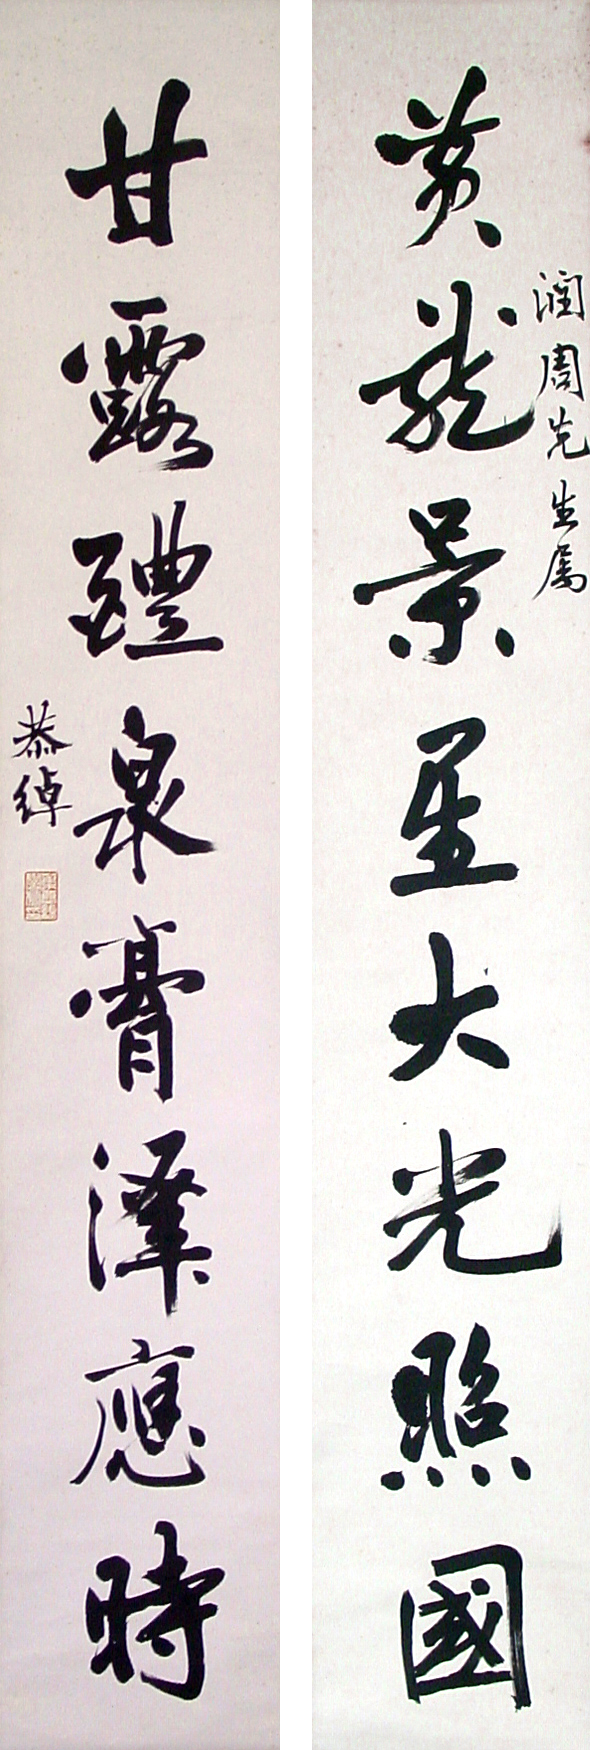 黄龍景星大光照國
潤周先生属
甘露醴泉膏澤應時
恭綽